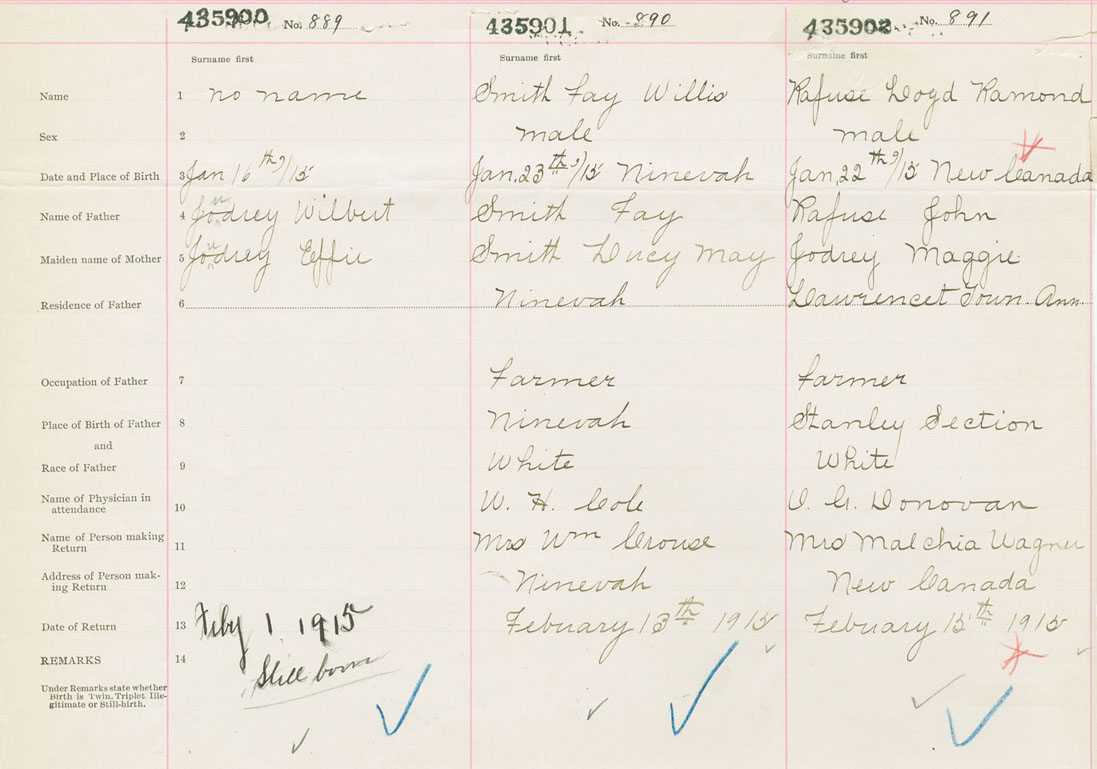 435900 No. 889 435901 No. 890 435902 No. 891
Surname first Surname first Surname first
Name 1 no name Smith Fay Willis Rafuse Loyd Ramond
Sex 2 male male
Date and Place of Birth 3 Jan 16th 9/15 Jan. 23th 9/15 Ninevah Jan, 22th 9/15 New Canada
Name of Father 4 Jodrey Wilbert Smith Fay Rafuse John
Maiden name of Mother 5 Jodrey Effie Smith Lucy May Jodrey Maggie
Residence of Father 6 Ninevah Lawrencet Town. Ann.
Occupation of Father 7 Farmer Farmer
Place of Birth of Father 8 Ninevah Stanley Section
and
Race of Father 9 White White
Name of Physician in
attendance 10 W. H. Cole Donovan
Name of Person making
Return 11 Mrs Wm Crouse Mrs Malchia Wagner
Address of Person mak-
ing Return 12 Ninevah New Canada
Date of Return 13 Feby 1 1915 Febuary 13th 1915 Febuary 15th 1915
REMARKS 14 Still born
Under Remarks state whether
Birth is Twin, Triplet, Ille-
gitimate or Still-birth.